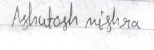 Ashutosh mishra